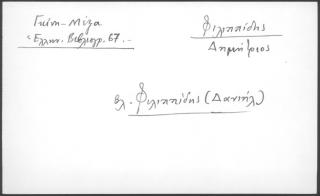 Γκίνη - Μέξα
"Ελλην. Βιβλιογρ. 67. -
Φιλιππίδης
Δημήτριος
βλ. Φιλιππίδης (Δανιήλ)